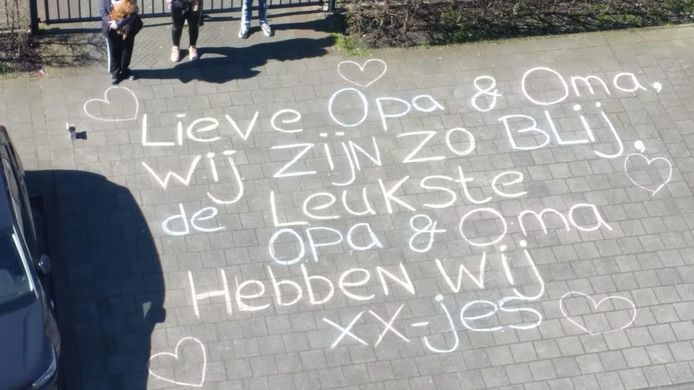 Lieve Opa & Oma,
wij zijn zo BLij,
de Leukste
opa & oma
Hebben wij
xx-jes